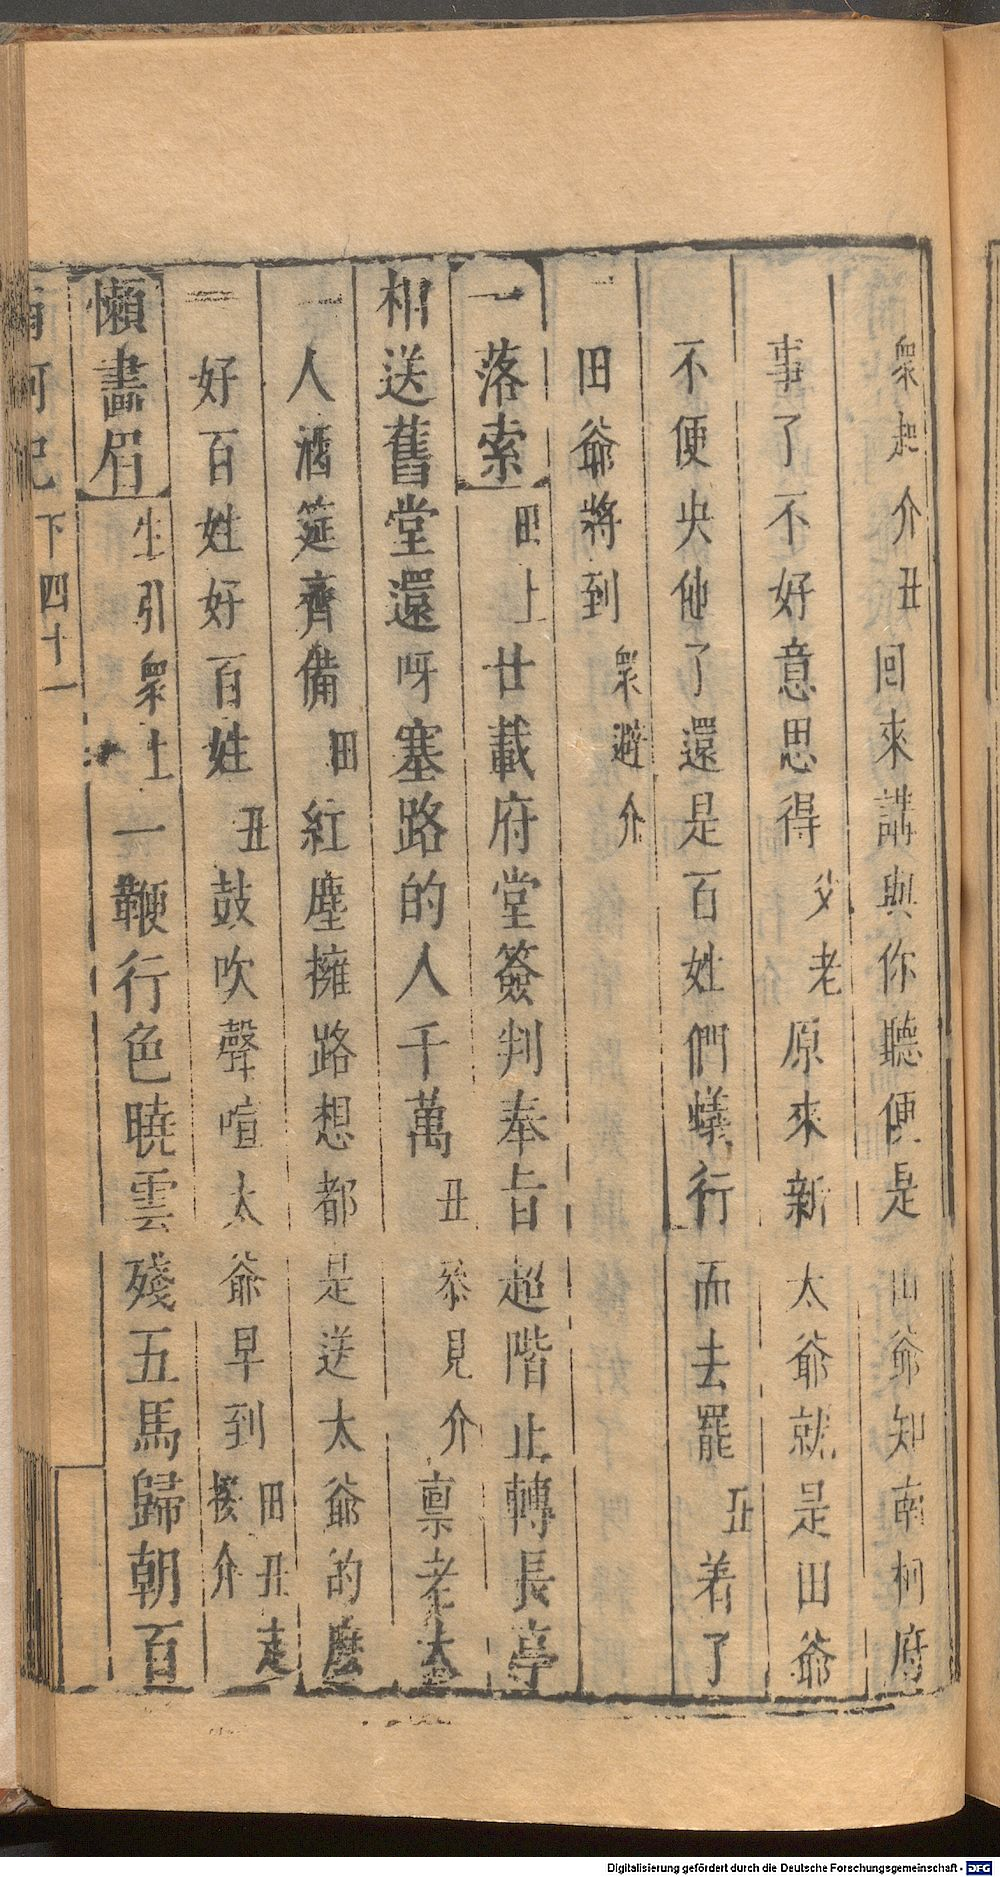 衆起介丑回來講與你聽便是田爺知南柯府
事了不好意思得父老原來新太爺就是田爺
不便央他了還是百姓們蟻行而去罷丑着了
田爺將到衆避介
一落索田上廿載府堂簽判奉旨超階止轉長亭
相送舊堂還呀塞路的人千萬丑叅見介稟老太
人酒筵齊備田紅塵擁路想都是送太爺的麽
好百姓好百姓丑鼓吹聲喧太爺早到田丑走接介
懶畫眉生引衆上一鞭行色曉雲殘五馬歸朝百
南柯記
下四十一
Digitalisierung gefördert durch die Deutsche Forschungsgemeinschaft - DFG